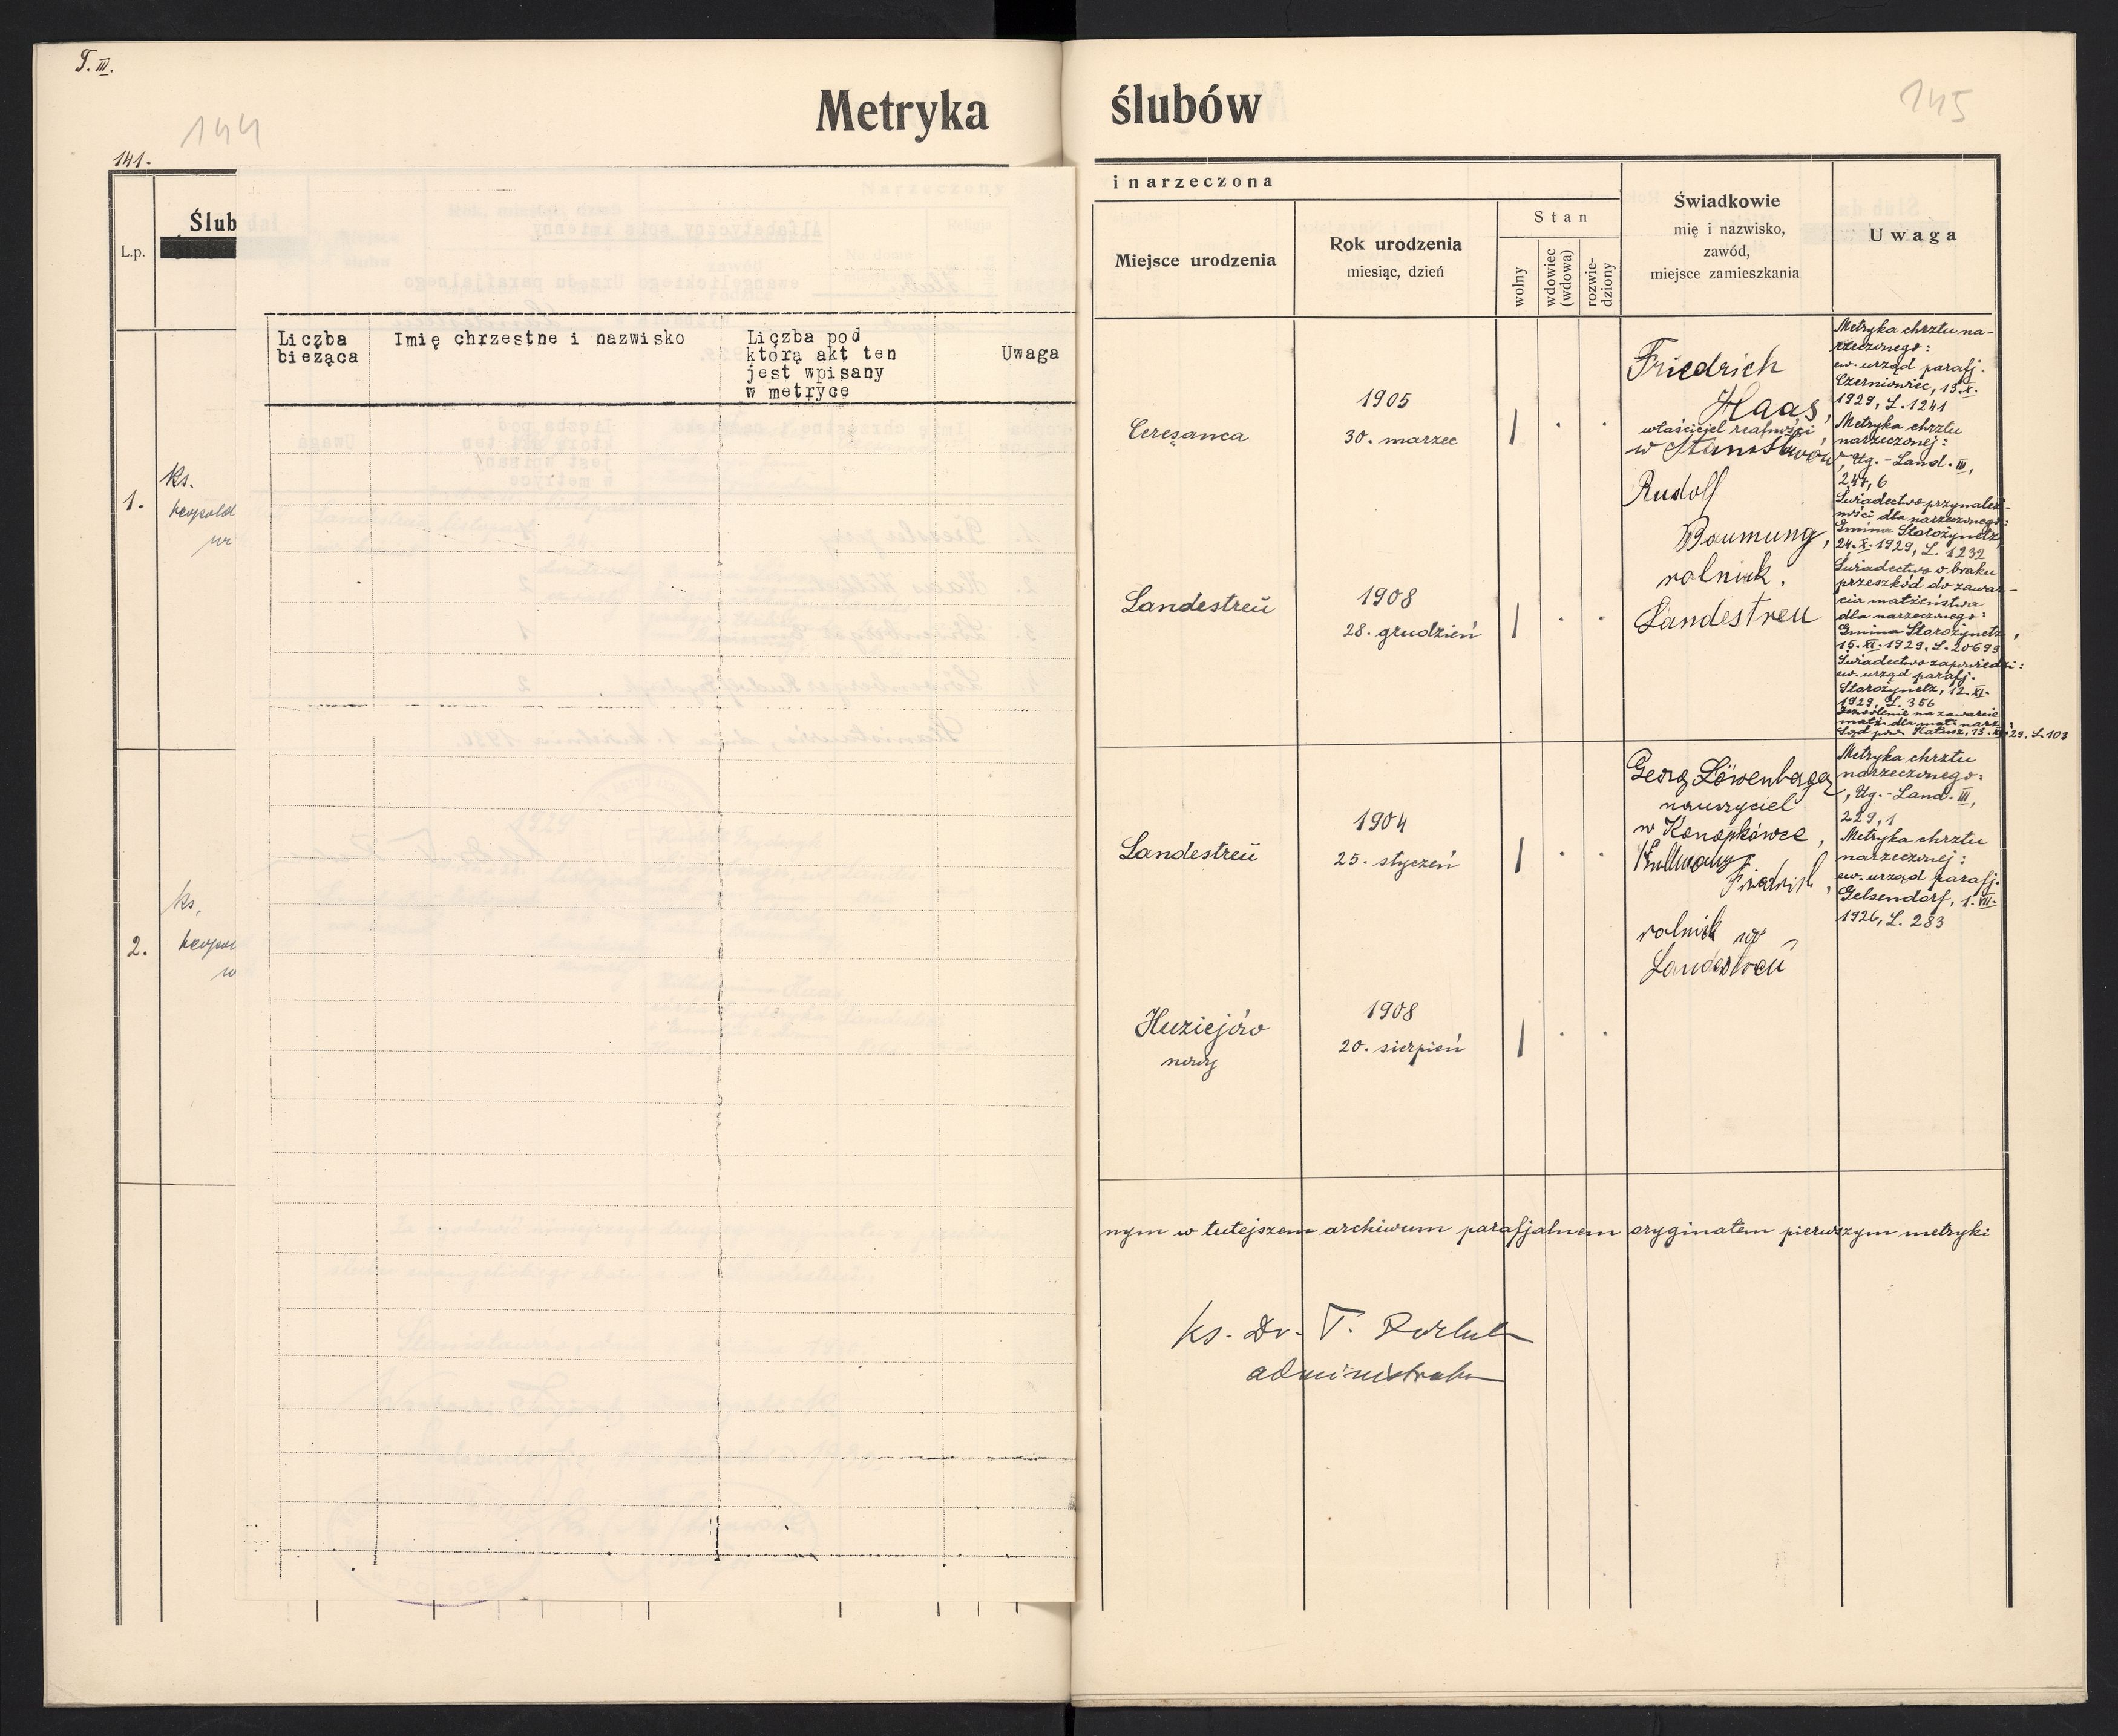 T. III.
144
141.
Metryka
L.p.
Ślub
Liczba
bieżąca
Imię chrzestne i nazwisko
Liczba pod
którą akt ten
jest wpisany
w metryce
Uwaga
1.
ks.
Leopold
w
2.
ks.
w
ślubów
145
i narzeczona
Miejsce urodzenia
Rok urodzenia
miesiąc, dzień
Stan
wolny
wdowiec
(wdowa)
rozwie-
dziony
Świadkowie
mię i nazwisko,
zawód,
miejsce zamieszkania
Uwaga
Cereşanca
1905
30. marzec
Landestreü
1908
28. grudzień
Friedrich
Haas,
właściciel realności
w Stanisławowie,
Rudolf
Baumung,
rolnik,
Landestreu
Metryka chrztu na-
rzeczonego:
ew. urząd parafj.
Czerniowiec, 13. X.
1929, L. 1241
Metryka chrztu
narzeczonej:
Ug.-Land. III,
244, 6
Świadectwo przynależ-
ności dla narzeczonego:
Gmina Storożynetz,
24. X. 1929, L. 1232
Świadectwo o braku
przeszkód do zawar-
cia małżeństwa
dla narzeczonego:
Gmina Storożynetz,
15. XI. 1929, L. 20699
Świadectwo zapowiedzi:
ew. urząd parafj.
Storożynetz, 12. XI.
1929, L. 356
Zezwolenie na zawarcie
małż. dla mał. narz.:
Sąd pow. Kałusz, 13. XI. 29. L. 103
Landestreü
1904
25. styczeń
Huziejów
nowy
1908
20. sierpień
Georg Löwenberger
nauczyciel
w Konopkówce,
Friedrich,
rolnik w
Landestreü
Metryka chrztu
narzeczonego:
Ug.-Land. III,
229, 1
Metryka chrztu
narzeczonej:
ew. urząd parafj.
Gelsendorf, 1. VII.
1926, L. 283
nym w tutejszem archiwum parafjalnem oryginałem pierwszym metryki
ks. Dr. T.
administrator